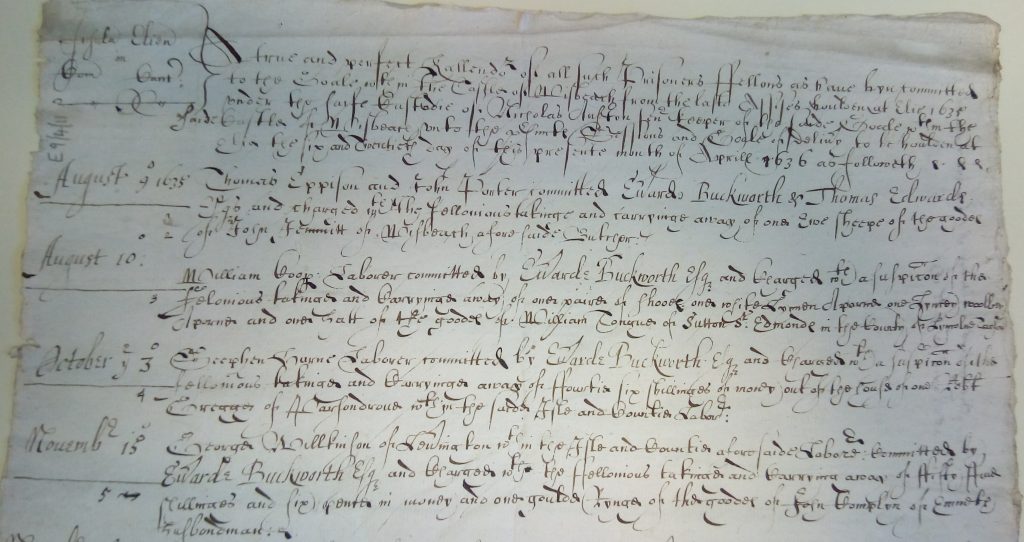 Insula Elien
in
Com Cant
A true and perfect Kallendr of all such Prisoners Fellons as have byn committed
to the Goale wthin the Castle of Wisbeach from the last Assizes houlden at Elie 1635
under the safe Custodie of Nicholas keeper of the saide Goale wthin the
saide Castle of Wisbeach unto the Sessions and Goale of delivry to be houlden at
Elie the six and twentieth day of this presente month of Aprill 1636 as followeth
E9/4/1
August 9 1635 Thomas Eppison and John Porter committed Edward Buckworth & Thomas Edwards
Esqrs and charged wth the fellonious takinge and carryinge away of one Ewe sheepe of the goodes
2 of John of Wisbeach afore saide
August 10: William Labourer committed by Edward Buckworth Esqz and charged wth a suspicion of the
3 felonious takinge and karryinge away of one paire of shooes one white Lynen Aporne one Lynsey woolsey
Aporne and one hatt of the goodes of William Tongue of Sutton St Edmonds in the County of
October 3 Steephen Laborer committed by Edward Buckworth Esqz and charged wth a suspicion of the
fellonious takinge and karryinge away of ffourtie six shillinges of money out of the house of one
4 Creagge of wthin the saide Isle and Countie Labor
Novembr 15 George Willkinson of Leverington wthin the Isle and Countie aforesaide Laborer Committed by
Edward Buckworth Esqz and charged wth the ffellonious takinge and karrying away of fiftie ffive
5 shillinges and six pence in money and one goulde Rynge of the goodes of John of Emneth
husbondman: